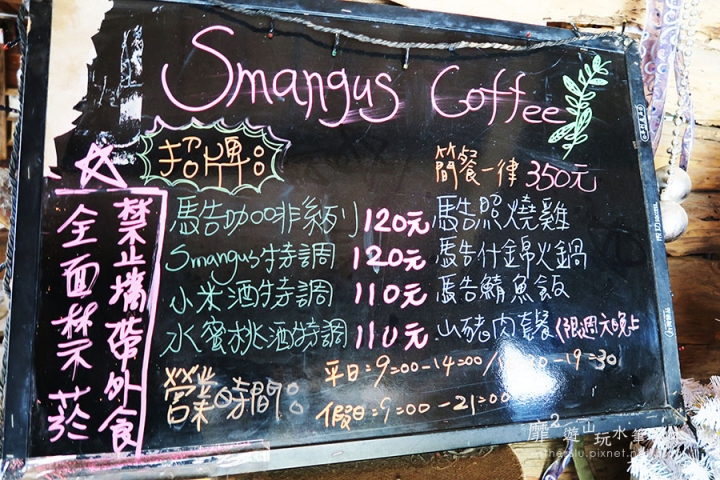 Smangus Coffee
招牌:
馬告咖啡系列 120元
Smangus特調 120元
小米酒特調 110元
水蜜桃酒特調 110元
簡餐一律 350元
馬告照燒雞
馬告什錦火鍋
馬告鯖魚飯
山豬肉套餐(限週六晚上
營業時間:
平日:9:00-14:00/ -19:30
假日:9:00-21:00
禁止攜帶外食
全面禁菸
靡²遊山玩水筆